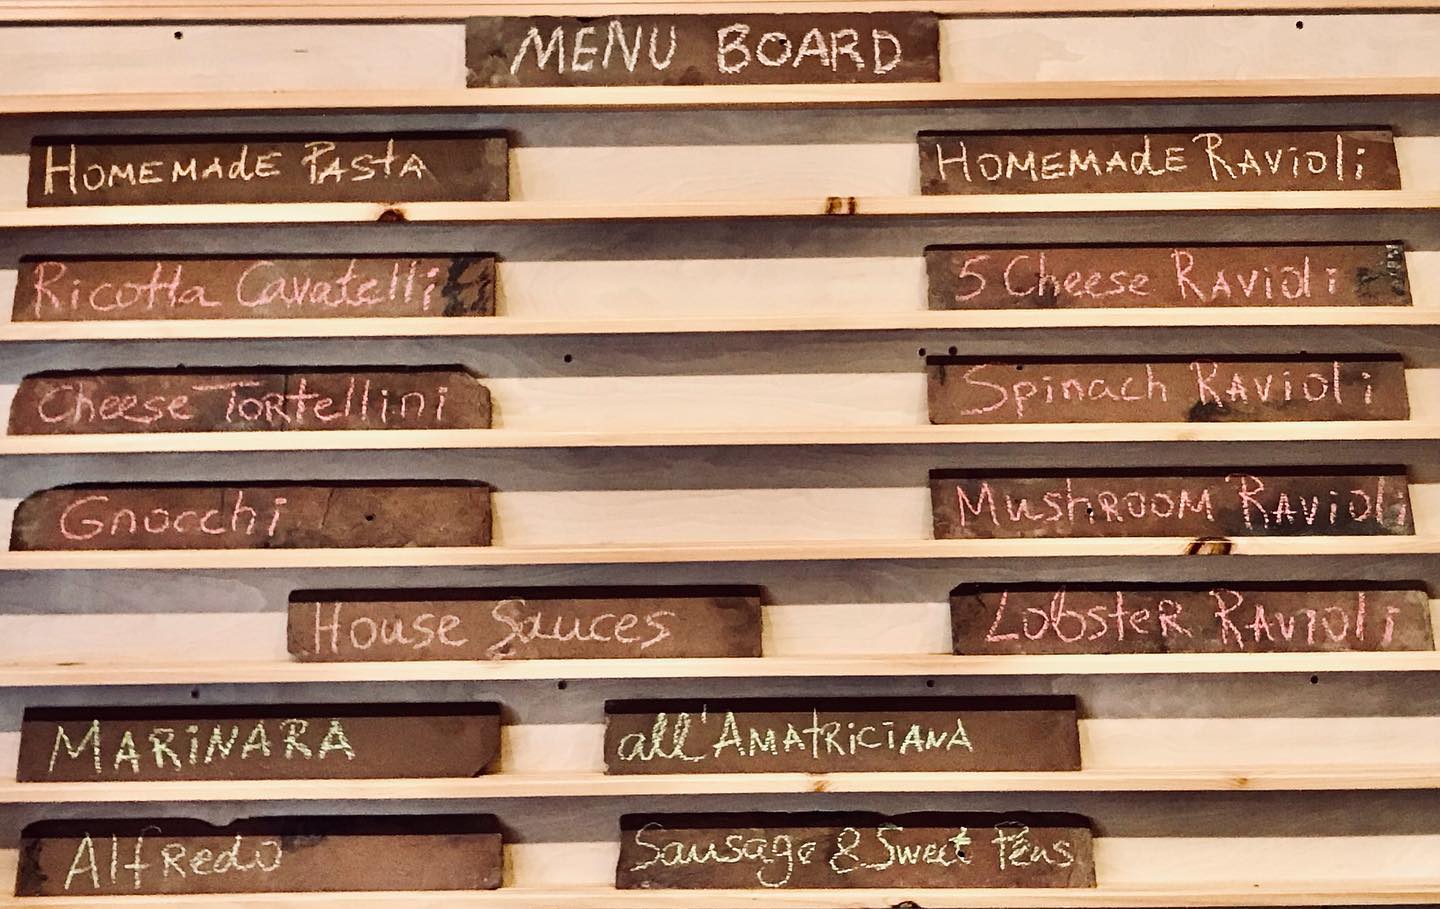 MENU BOARD
HOMEMAdE PAStA
HOMEMAdE RAViOli
Ricotta Cavatelli
5 Cheese RAViOli
Cheese TORtellini
Spinach RAViOli
Gnocchi
MushROOM RAViOli
House Sauces
LobsteR RAViOli
MARiNARA
all'AMAtRiCiANA
AlfRedo
Sausage & Sweet Peas